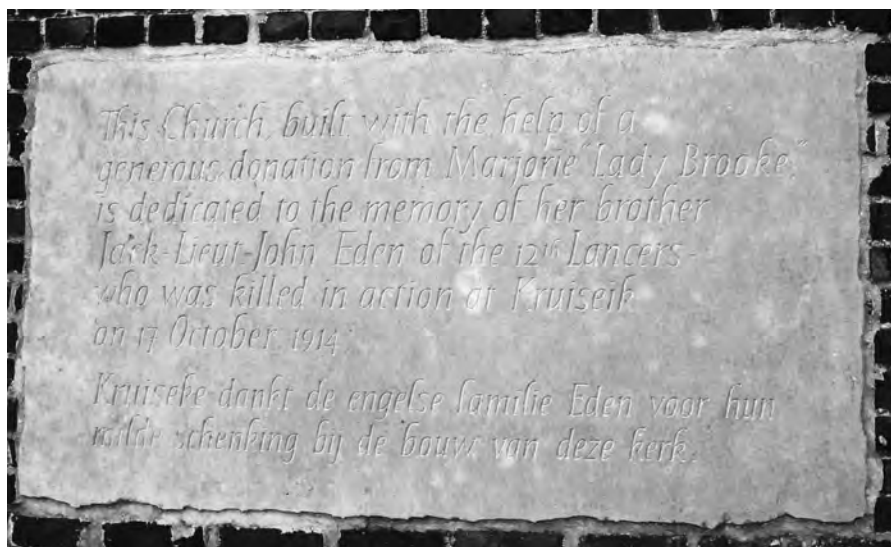 This Church, built with the help of a
generous donation from Marjorie "Lady Brooke",
is dedicated to the memory of her brother
Jack-Lieut-John Eden of the 12th Lancers-
who was killed in action at Kruiseik
on 17 October 1914.
Kruiseke dankt de engelse familie Eden voor hun
milde schenking bij de bouw van deze kerk.